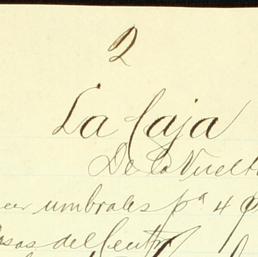 2
La Caja
De la Vuelta
umbrales pª 4
Casas del Centro